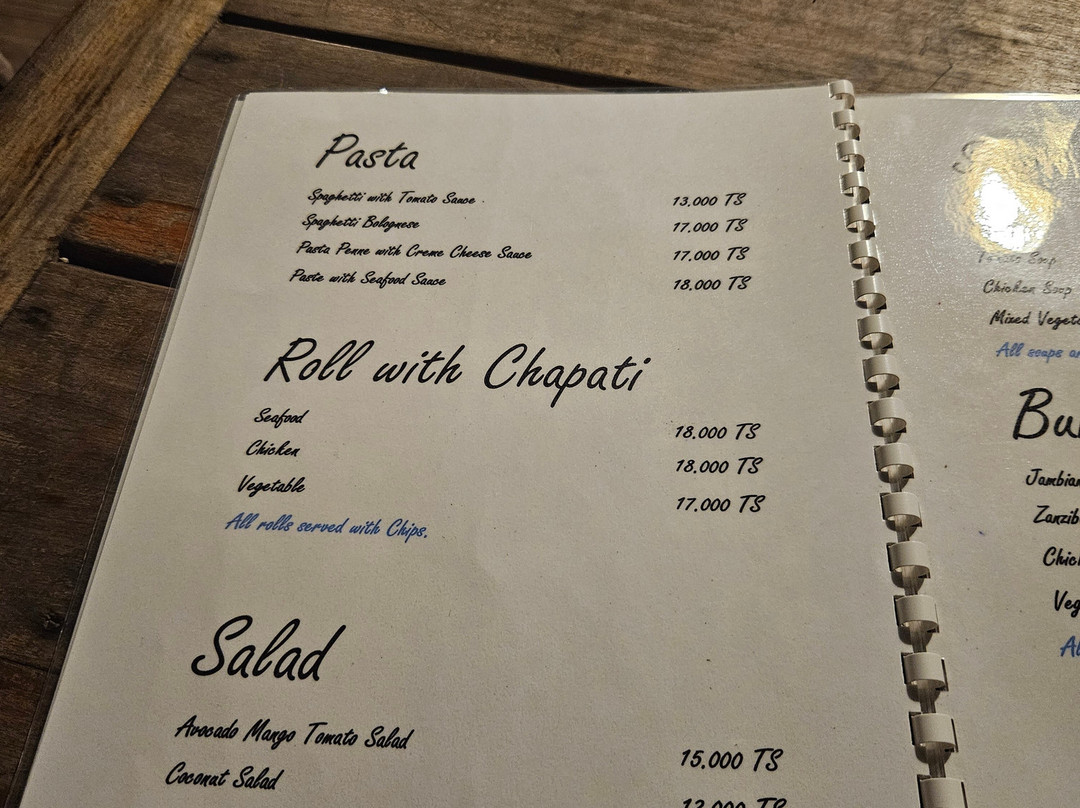 Pasta
Spaghetti with Tomato Sauce 13.000 TS
Spaghetti Bolognese 17.000 TS
Pasta Penne with Creme Cheese Sauce 17.000 TS
Paste with Seafood Sauce 18.000 TS
Roll with Chapati
Seafood 18.000 TS
Chicken 18.000 TS
Vegetable 17.000 TS
All rolls served with Chips.
Salad
Avocado Mango Tomato Salad 15.000 TS
Coconut Salad
Soup
Chicken Soup
Mixed
All soups